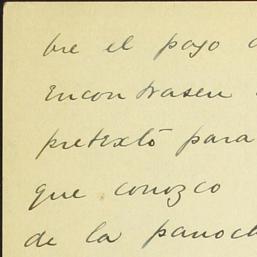 bre el pago
Encontrasen
pretexto para
que conozco
de la panoch